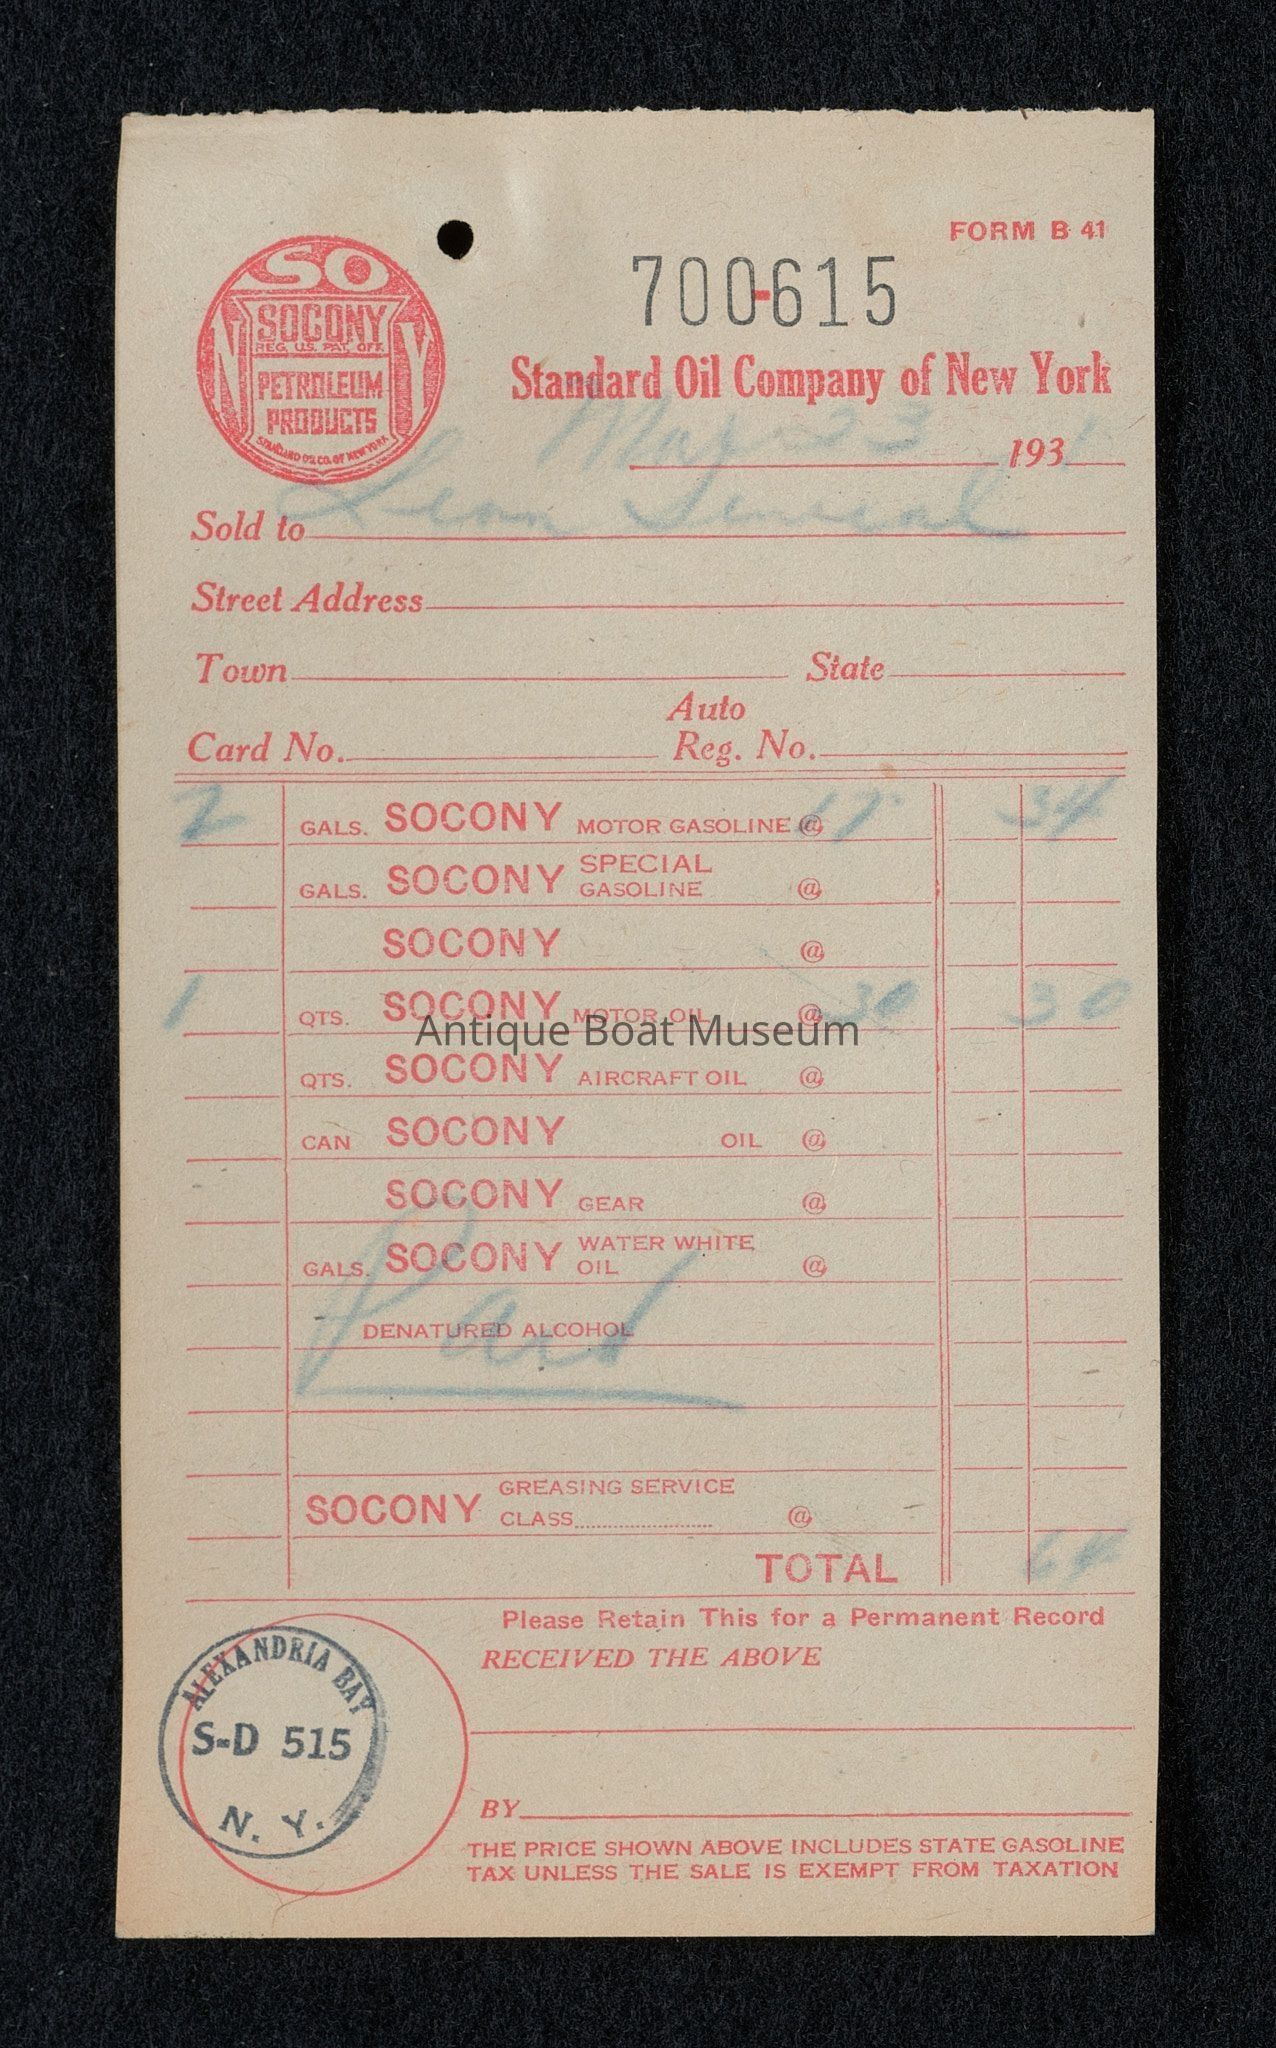 FORM B 41
SO
N Y
SOCONY
REG. U.S. PAT. OFF.
PETROLEUM
PRODUCTS
STANDARD OIL CO. OF NEW YORK
700-615
Standard Oil Company of New York
May 23 193
Sold to Leon
Street Address
Town State
Auto
Card No. Reg. No.
2 GALS. SOCONY MOTOR GASOLINE @ 17 34
SPECIAL
GALS. SOCONY GASOLINE @
SOCONY @
1 QTS. SOCONY MOTOR OIL @ 30 30
Antique Boat Museum
QTS. SOCONY AIRCRAFT OIL @
CAN SOCONY OIL @
SOCONY GEAR @
WATER WHITE
GALS. SOCONY OIL @
Paid
DENATURED ALCOHOL
GREASING SERVICE
SOCONY CLASS @
TOTAL 64
Please Retain This for a Permanent Record
RECEIVED THE ABOVE
ALEXANDRIA BAY
S-D 515
N. Y.
BY
THE PRICE SHOWN ABOVE INCLUDES STATE GASOLINE
TAX UNLESS THE SALE IS EXEMPT FROM TAXATION